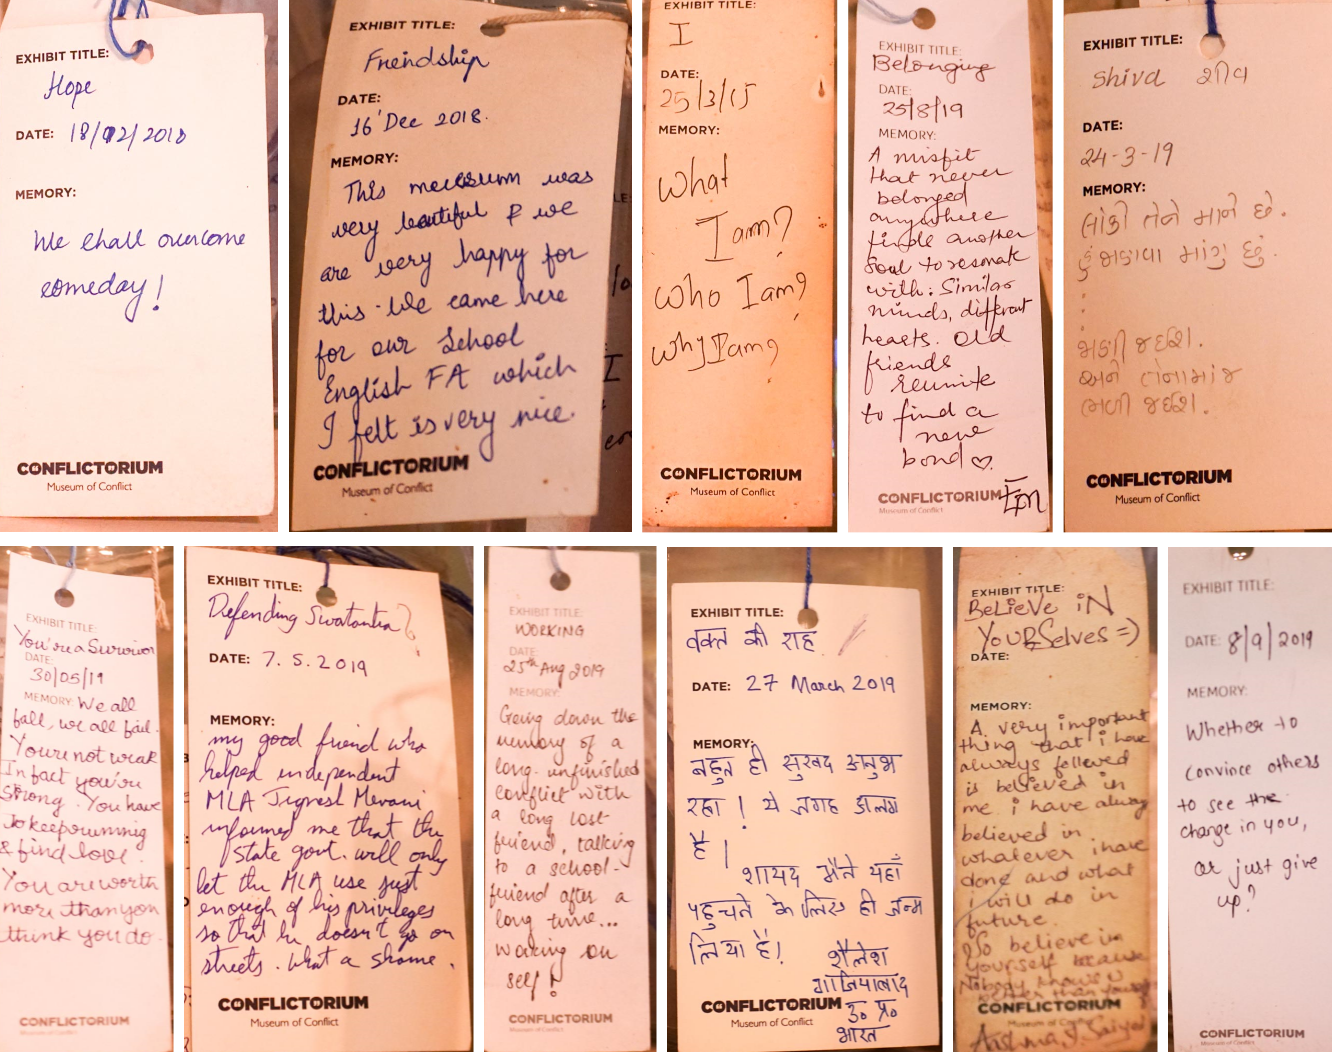 EXHIBIT TITLE:
Hope
DATE: 18/02/2018
MEMORY:
We shall overcome
someday!
CONFLICTORIUM
Museum of Conflict
EXHIBIT TITLE:
Friendship
DATE:
16 Dec 2018.
MEMORY:
This was
very beautiful & we
are very happy for
this. We came here
for our School
English FA which
I felt is very nice.
CONFLICTORIUM
Museum of Conflict
EXHIBIT TITLE:
I
DATE:
25/3/15
MEMORY:
What
I am?
Who I am?
why I am?
CONFLICTORIUM
Museum of Conflict
EXHIBIT TITLE:
Belonging
DATE:
25/8/19
MEMORY:
A misfit
that never
belonged
anywhere
another
Soul to resonate
with. Similar
minds, different
hearts. Old
friends
reunite
to find a
new
bond ♡
CONFLICTORIUM
Museum of Conflict
EXHIBIT TITLE:
Shiva
DATE:
24-3-19
MEMORY:
તેને માને છે.
હું માંગુ છું.
જઈશ.
અને
ભળી જઈશ.
CONFLICTORIUM
Museum of Conflict
EXHIBIT TITLE:
You're a Survivor
DATE:
30/05/19
MEMORY: We all
fall, we all fail.
You're not weak
In fact you're
strong. You have
to keep running
& find love.
You are worth
more than you
think you do.
CONFLICTORIUM
Museum of Conflict
EXHIBIT TITLE:
Defending Swatantra?
DATE: 7.5.2019
MEMORY:
my good friend who
helped independent
MLA Jignesh Mevani
informed me that the
state govt. will only
let the MLA use just
enough of his privileges
so that he doesn't go on
streets. What a shame.
CONFLICTORIUM
Museum of Conflict
EXHIBIT TITLE:
WORKING
DATE:
25th Aug 2019
MEMORY:
Going down the
memory of a
long unfinished
conflict with
a long lost
friend, talking
to a school-
friend after a
long time...
working on
self!
CONFLICTORIUM
Museum of Conflict
EXHIBIT TITLE:
वक्त की राह
DATE: 27 March 2019
MEMORY:
बहुत ही सुखद अनुभव
रहा! ये जगह अलग
है।
शायद मैंने यहाँ
पहुचने के लिए ही जन्म
लिया है!
शैलेश
गाजियाबाद
CONFLICTORIUM
उ० प्र०
Museum of Conflict
भारत
EXHIBIT TITLE:
BeLieVe iN
YoURSelves =)
DATE:
MEMORY:
A very important
thing that i have
always followed
is believed in
me i have always
believed in
whatever i have
done and what
i will do in
future.
So believe in
yourself because
Nobody knows u
CONFLICTORIUM
Museum of Conflict
EXHIBIT TITLE:
DATE: 8/9/2019
MEMORY:
Whether to
convince others
to see the
change in you,
or just give
up?
CONFLICTORIUM
Museum of Conflict